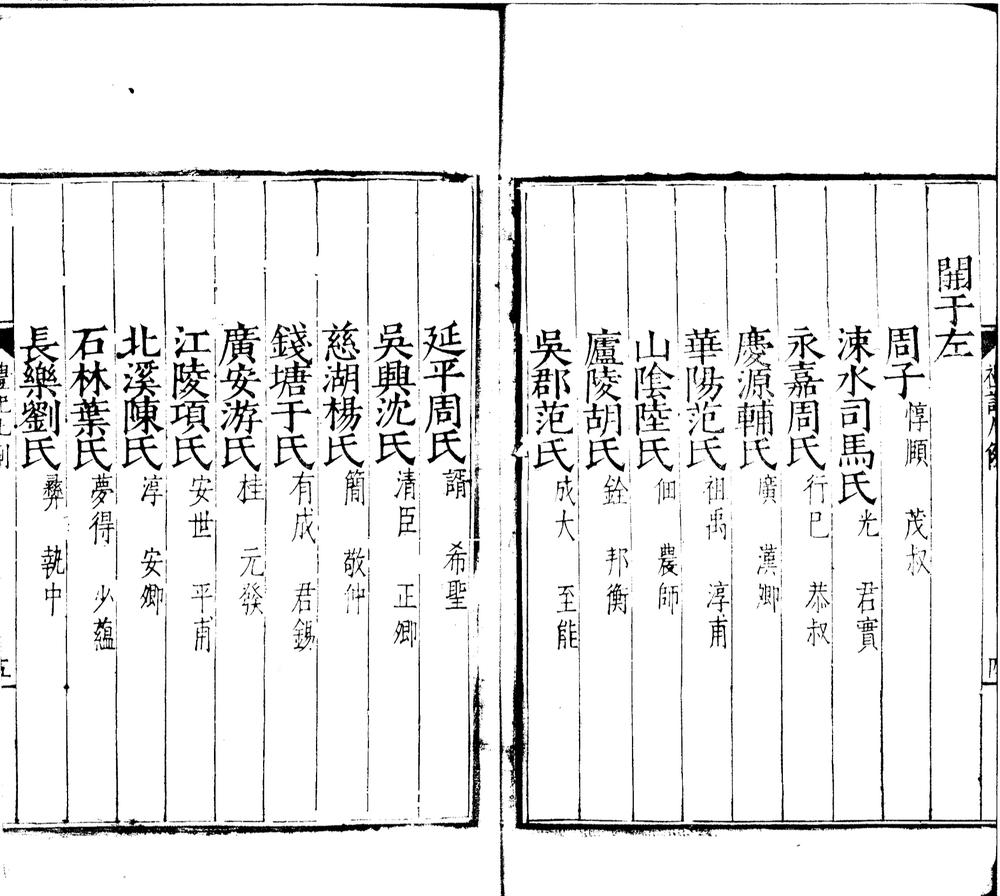 開于左
周子惇頤 茂叔
涑水司馬氏光 君實
永嘉周氏行巳 恭叔
慶源輔氏廣 漢卿
華陽范氏祖禹 淳甫
山陰陸氏佃 農師
廬陵胡氏銓 邦衡
吳郡范氏成大 至能
延平周氏諝 希聖
吳興沈氏清臣 正卿
慈湖楊氏簡 敬仲
錢塘于氏有成 君錫
廣安游氏桂 元發
江陵項氏安世 平甫
北溪陳氏淳 安卿
石林葉氏夢得 少蘊
長樂劉氏彝 執中
五